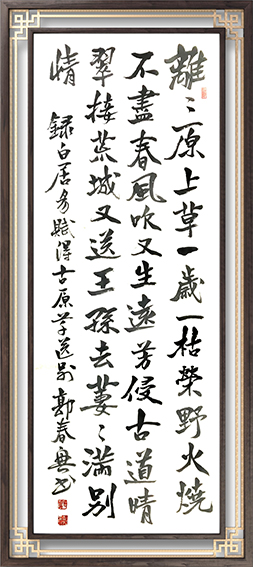 離〻原上草一歲一枯榮野火燒
不盡春風吹又生遠芳侵古道晴
翠接荒城又送王孫去萋〻滿別
情 録白居易賦得古原草送別 郭春书